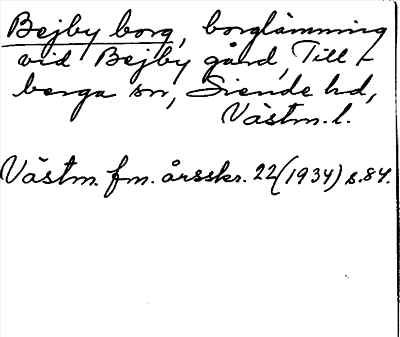 Bejby borg, borglämning
vid Bejby gård, Till-
berga sn, Siende hd,
Västm. l.
Västm. fm. årsskr. 22 (1934) s. 84.